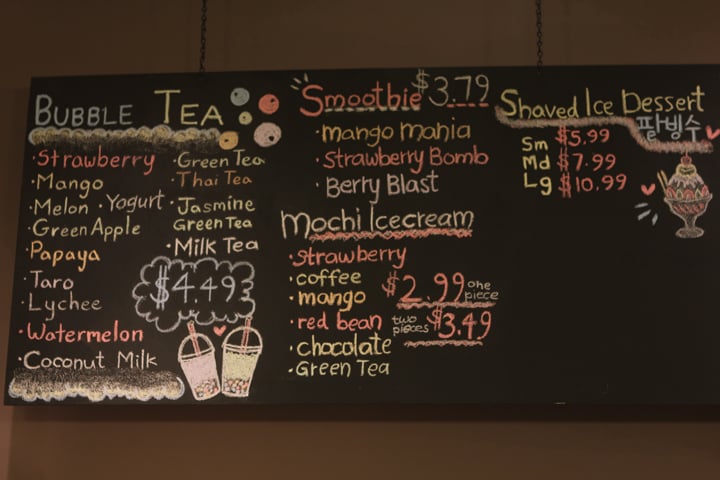 BUBBLE TEA
·Strawberry
·Mango
·Melon ·Yogurt
·Green Apple
·Papaya
·Taro
·Lychee
·Watermelon
·Coconut Milk
·Green Tea
·Thai Tea
·Jasmine
Green Tea
·Milk Tea
$4.49
Smoothie $3.79
·mango mania
·Strawberry Bomb
·Berry Blast
Mochi Icecream
·strawberry
·coffee
·mango
·red bean
·chocolate
·Green Tea
$2.99 one
piece
two
pieces $3.49
Shaved Ice Dessert
팥빙수
Sm $5.99
Md $7.99
Lg $10.99